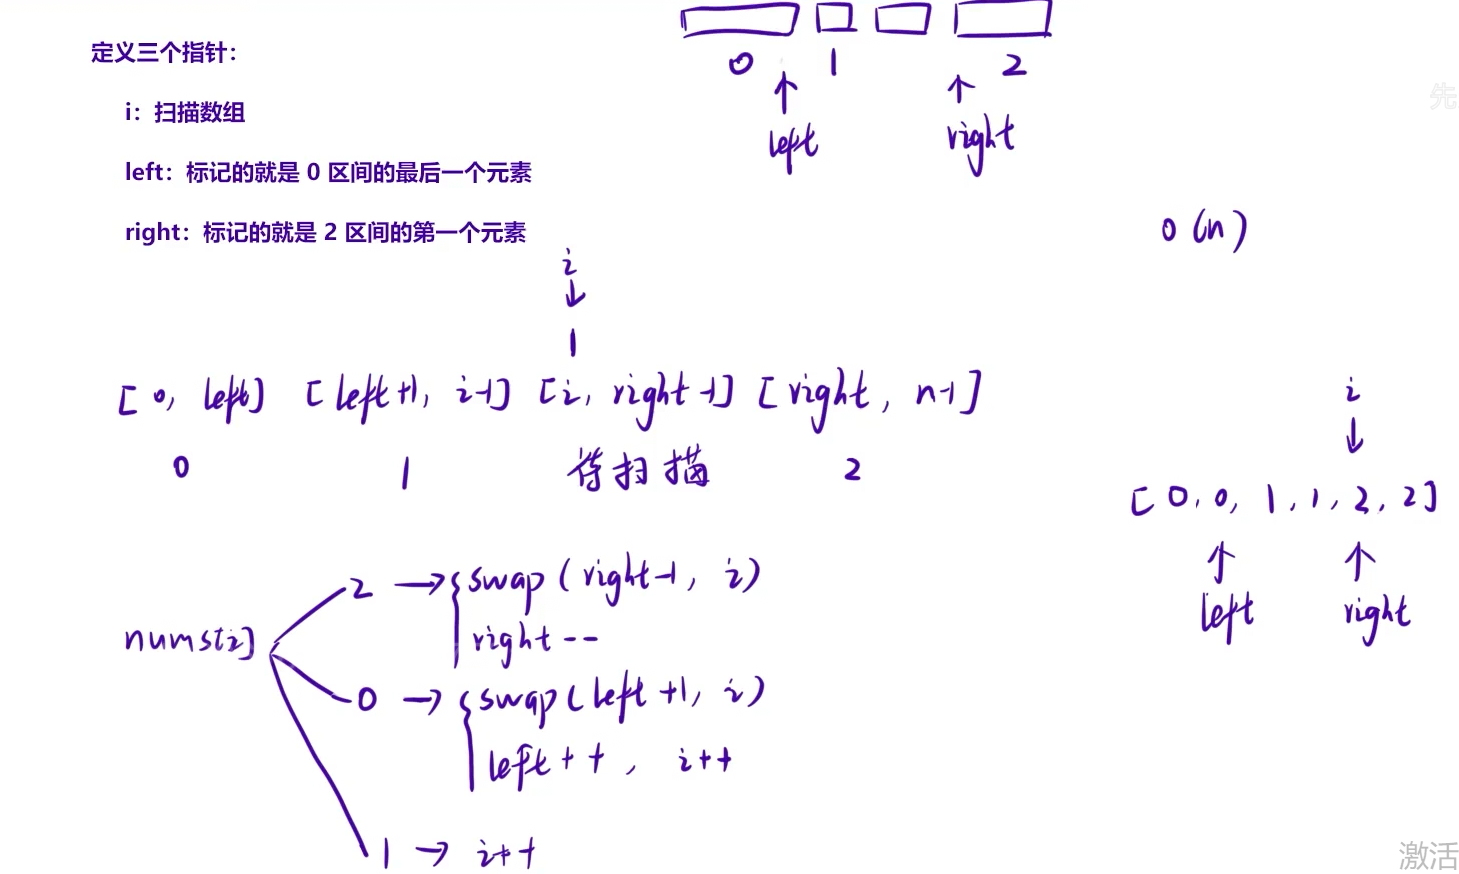 定义三个指针：
i：扫描数组
left：标记的就是 0 区间的最后一个元素
right：标记的就是 2 区间的第一个元素
0 1 2
left right
先
O(n)
i
1
[0, left] [left+1, i-1] [i, right-1] [right, n-1]
0 1 待扫描 2
i
[0, 0, 1, 1, 2, 2]
left right
nums[i]
2 → swap(right-1, i)
right--
0 → swap(left+1, i)
left++, i++
1 → i++
激活